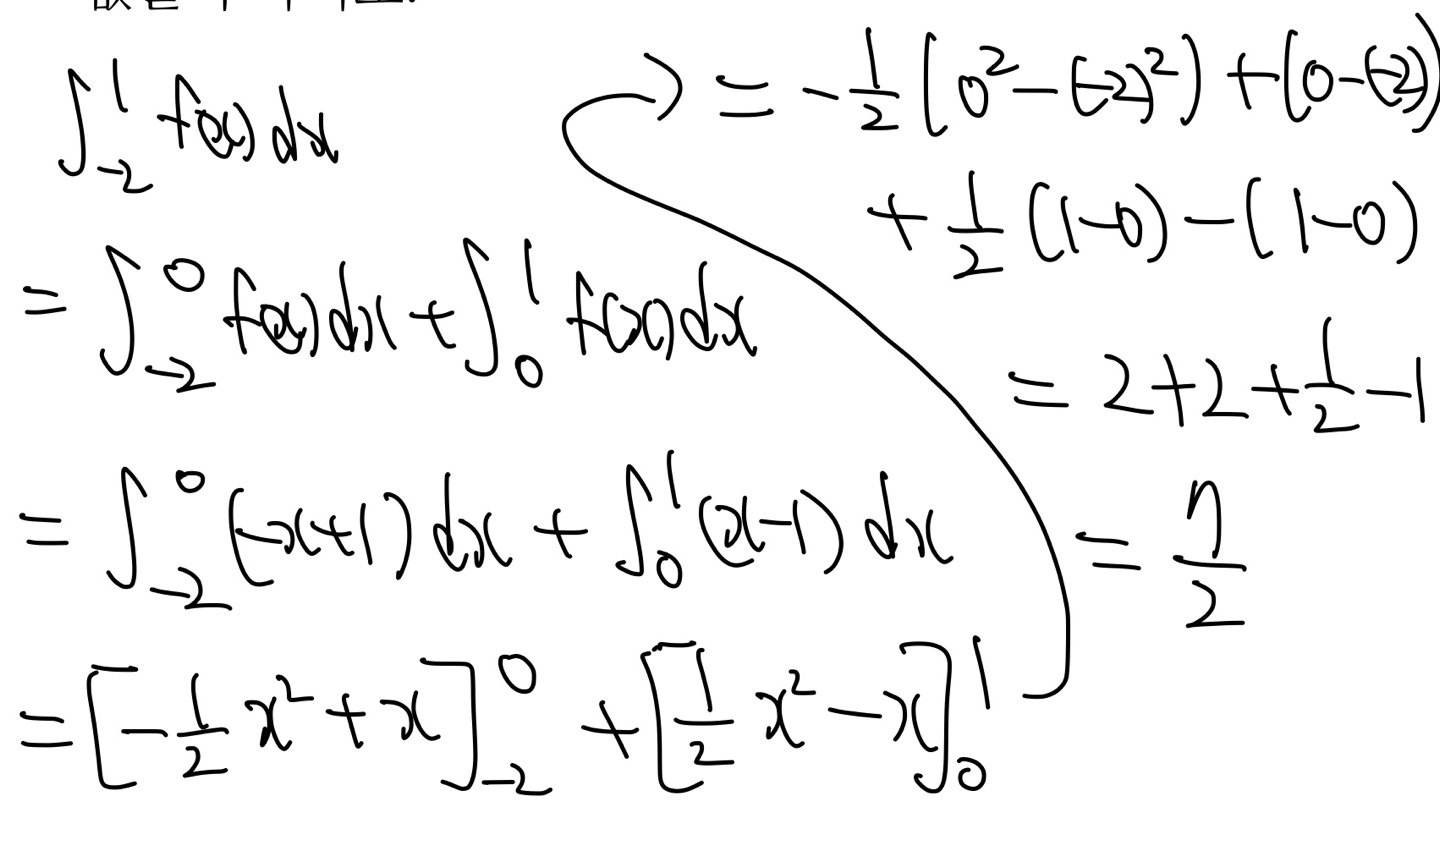 ∫_{-2}^{1} f(x) dx
= ∫_{-2}^{0} f(x) dx + ∫_{0}^{1} f(x) dx
= ∫_{-2}^{0} (-x+1) dx + ∫_{0}^{1} (x-1) dx
= [-1/2 x² + x]_{-2}^{0} + [1/2 x² - x]_{0}^{1}
= -1/2 (0² - (-2)²) + (0-(-2))
+ 1/2 (1-0) - (1-0)
= 2+2+1/2-1
= 7/2